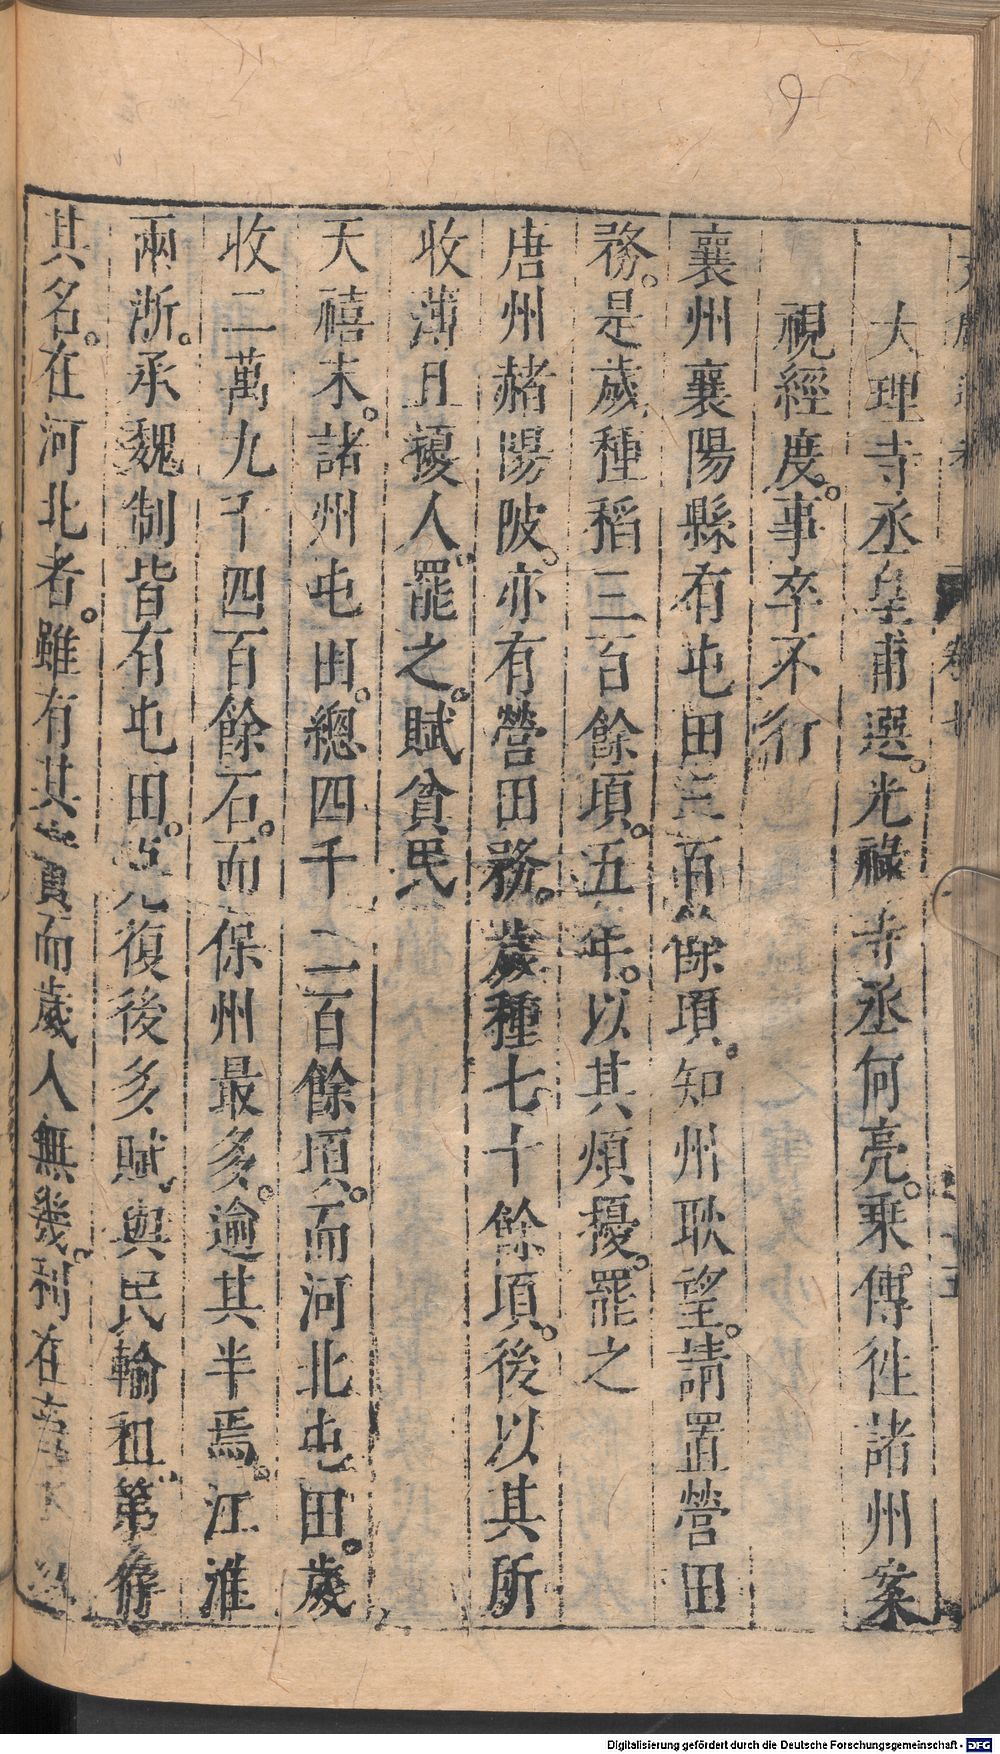 大理寺丞皇甫選。光祿寺丞何亮。乗傳徃諸州案
視經度。事卒不行
襄州襄陽縣有屯田三百餘頃。知州耿望。請置營田
務。是歲種稻三百餘頃。五年。以其煩擾。罷之
唐州赭陽陂。亦有營田務。歲種七十餘頃。後以其所
收薄且擾人。罷之。賦貧民
天禧末。諸州屯田。總四千二百餘頃。而河北屯田。歲
收二萬九千四百餘石。而保州最多。逾其半焉。江淮
兩浙。承魏制皆有屯田。克復後多賦與民輸租。第存
其名。在河北者。雖有其實而歲入無幾。利在蓄水
卷七
9
Digitalisierung gefördert durch die Deutsche Forschungsgemeinschaft - DFG